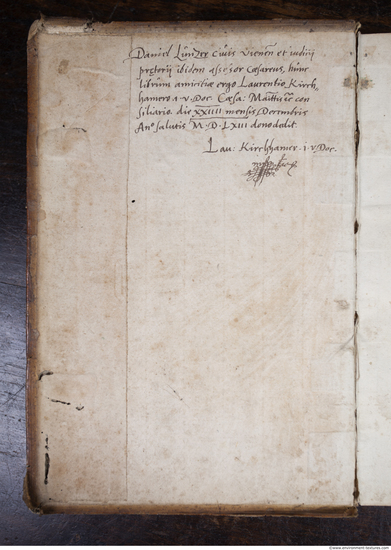 Daniel Linzer Ciuis Vienen et iudicij
prętorij ibidem assesor Cæsareus, hunc
librum amicitiæ ergo Laurentio Kirch,
hamero i.v. Doc. Cæsa: Maᵗⁱˢ con
siliario die XXIIII mensis Decembris
Anº salutis M.D.LXIII dono dedit.
Lau: Kirchhamer. i.v. Doc.
©www.environment-textures.com